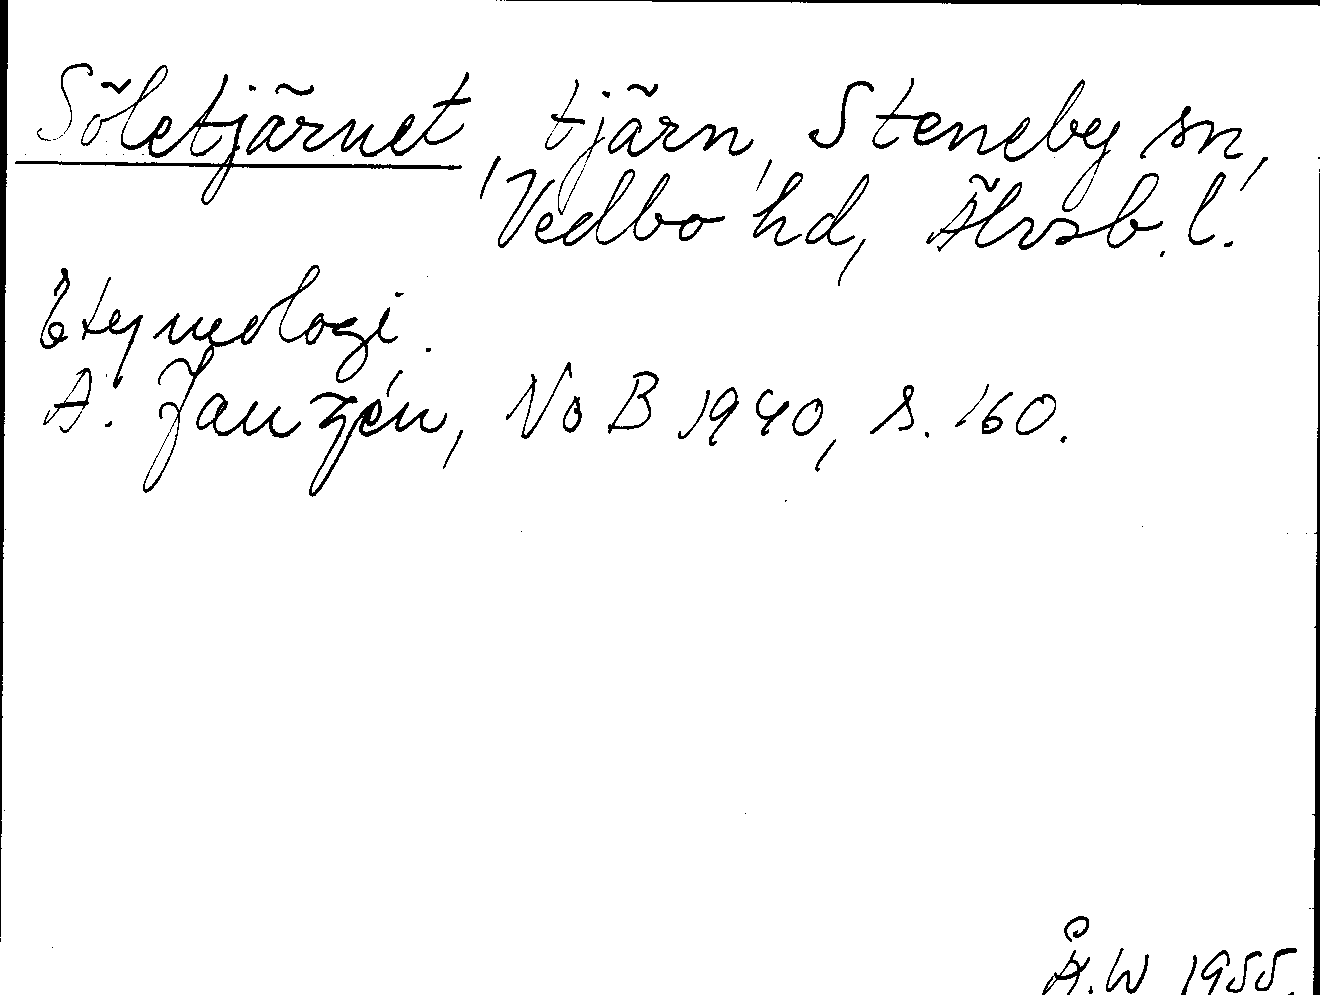 Söletjärnet, tjärn, Steneby sn,
Vedbo hd, Älvsb. l.
Etymologi.
A. Janzén, NoB 1940, s. 160.
Å.W 1955.